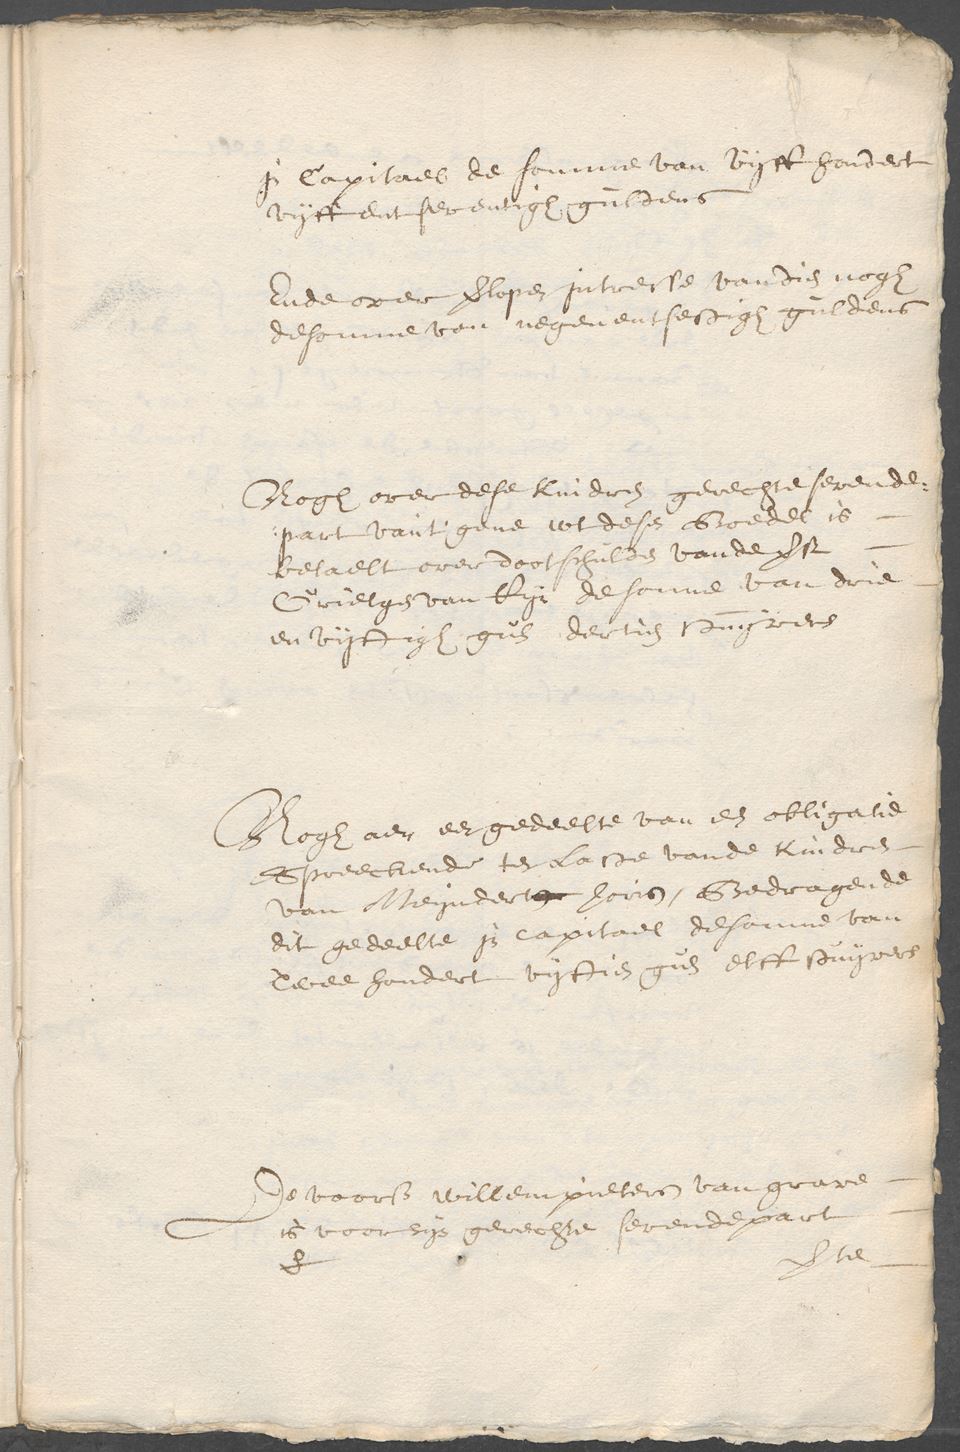 in Capitael de somme van vijff hondert
vijffentseventigh guldens
Ende over verlopen intresse van dien nogh
de somme van negenentsestigh guldens
Nogh over dese kindren gerechte sevende-
part van 't gene wt desen Boedel is
betaelt over dootschulden vande
Grietgen van Rijn de somme van drie
en vijftigh guls dertien stuyvers
Nogh aen een gedeelte van een obligatie
Spreeckende ten Laste vande kindren
van Meijndert Joris, Bedragende
dit gedeelte in capitael de somme van
twee hondert vijftien guls elff stuyvers
De voorsz willem pieters van grave
is voor zijn gerechte sevendepart